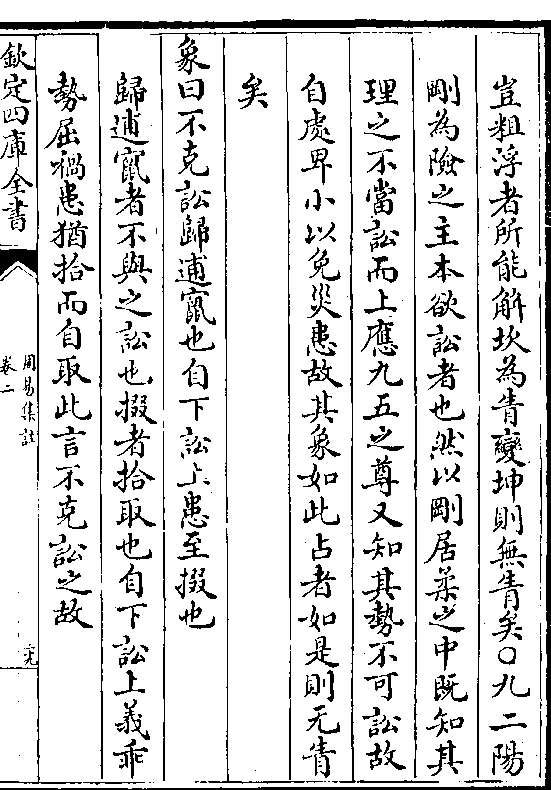 豈粗浮者所能解坎為眚變坤則無眚矣○九二陽
剛為險之主本欲訟者也然以剛居柔之中既知其
理之不當訟而上應九五之尊又知其勢不可訟故
自處卑小以免災患故其象如此占者如是則无眚
矣
象曰不克訟歸逋竄也自下訟上患至掇也
歸逋竄者不與之訟也掇者拾取也自下訟上義乖
勢屈禍患猶拾而自取此言不克訟之故
欽定四庫全書
周易集註
卷二
二九